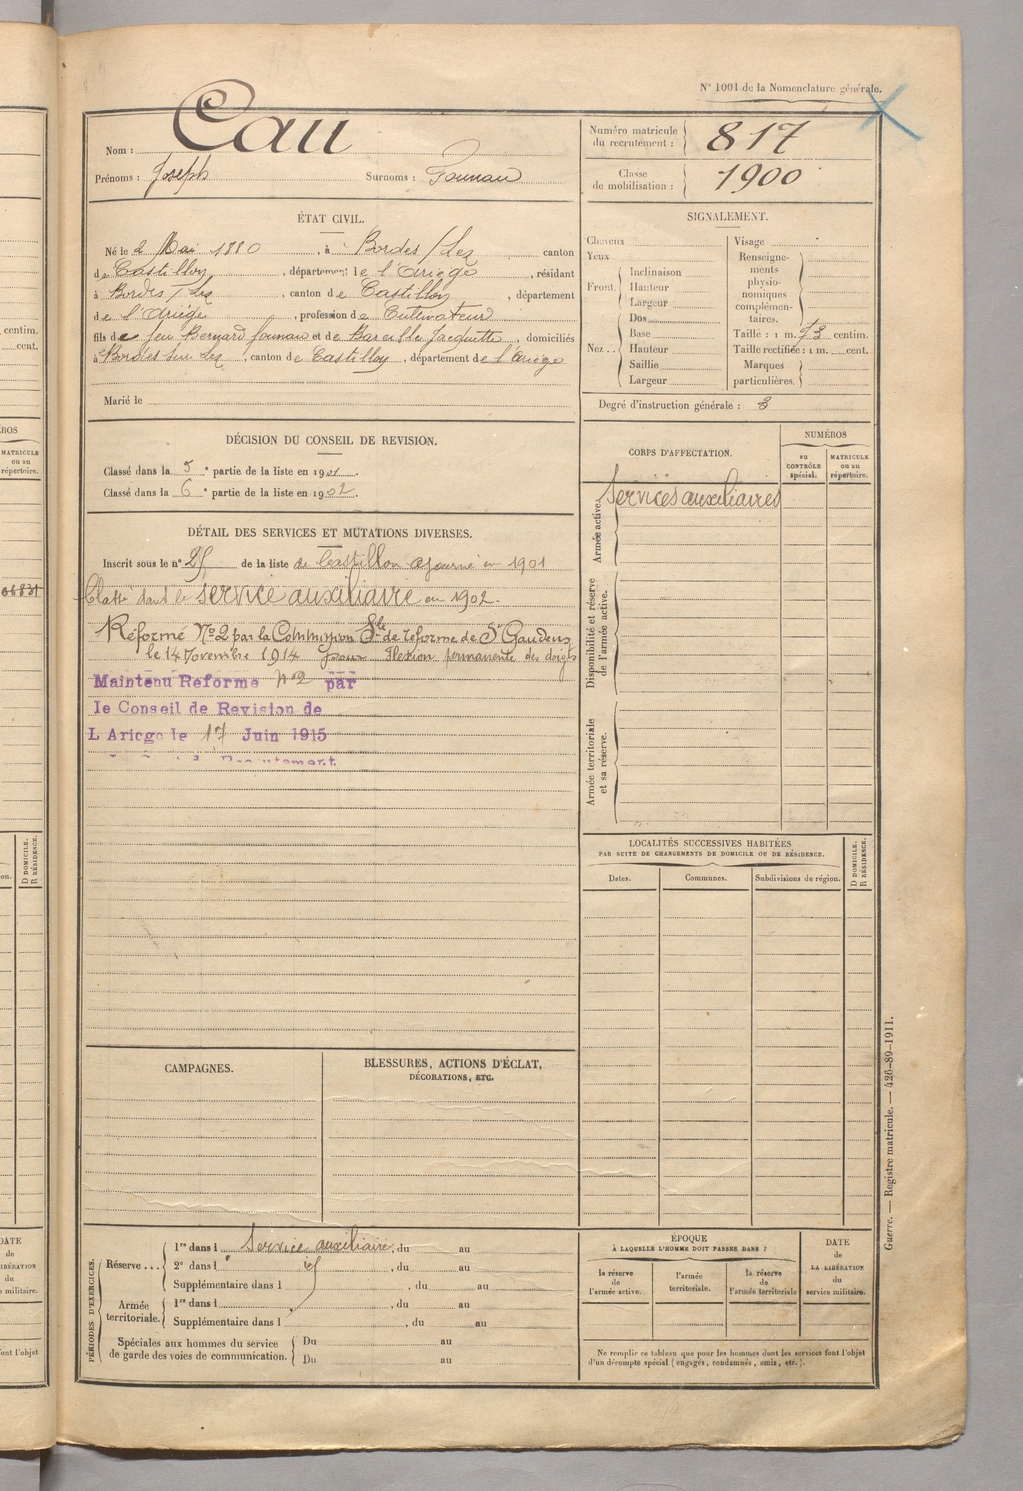 N° 1001 de la Nomenclature générale.
Nom : Cau
Prénoms : Joseph Surnoms : Pounau
Numéro matricule du recrutement : 817
Classe de mobilisation : 1900
ÉTAT CIVIL.
Né le 2 Mai 1880, à Bordes / Lez, canton
de Castillon, département de l'Ariège, résidant
à Bordes / Lez, canton de Castillon, département
de l'Ariège, profession de Cultivateur
fils de feu Bernard Pounau et de Bareille Jacquette, domiciliés
à Bordes sur Lez, canton de Castillon, département de l'Ariège
Marié le
SIGNALEMENT.
Cheveux
Yeux
Front. Inclinaison
Hauteur
Largeur
Nez.. Dos
Base
Hauteur
Saillie
Largeur
Visage
Renseignements physionomiques complémentaires.
Taille : 1 m. 73 centim.
Taille rectifiée : 1 m. cent.
Marques particulières.
Degré d'instruction générale : 3
DÉCISION DU CONSEIL DE REVISION.
Classé dans la 5e partie de la liste en 1901.
Classé dans la 6e partie de la liste en 1902.
DÉTAIL DES SERVICES ET MUTATIONS DIVERSES.
Inscrit sous le n° 25 de la liste de Castillon ajourné en 1901
Classé dans le service auxiliaire en 1902.
Réformé N°2 par la Commission Sle de réforme de St Gaudens
le 14 Novembre 1914 pour Flexion permanente des doigts
Maintenu Reforme n°2 par
le Conseil de Revision de
L Ariege le 17 Juin 1915
CORPS D'AFFECTATION.
NUMÉROS
au CONTRÔLE spécial.
MATRICULE ou au répertoire.
Armée active.
Services auxiliaires
Disponibilité et réserve de l'armée active.
Armée territoriale et sa réserve.
LOCALITÉS SUCCESSIVES HABITÉES
PAR SUITE DE CHANGEMENTS DE DOMICILE OU DE RÉSIDENCE.
Dates.
Communes.
Subdivisions de région.
D DOMICILE.
R RÉSIDENCE.
CAMPAGNES.
BLESSURES, ACTIONS D'ÉCLAT,
DÉCORATIONS, ETC.
PÉRIODES D'EXERCICES.
Réserve ... 1re dans l Service auxiliaire, du au
2e dans l, du au
Supplémentaire dans l, du au
Armée territoriale. 1re dans l, du au
Supplémentaire dans l, du au
Spéciales aux hommes du service de garde des voies de communication. Du au
Du au
ÉPOQUE
À LAQUELLE L'HOMME DOIT PASSER DANS :
la réserve de l'armée active.
l'armée territoriale.
la réserve de l'armée territoriale
DATE de LA LIBÉRATION du service militaire.
Ne remplir ce tableau que pour les hommes dont les services font l'objet
d'un décompte spécial (engagés, condamnés, omis, etc.).
Guerre. — Registre matricule. — 426-89-1911.
centim.
cent.
MATRICULE
ou au
répertoire.
D DOMICILE.
R RÉSIDENCE.
DATE
de
du
militaire.
font l'objet